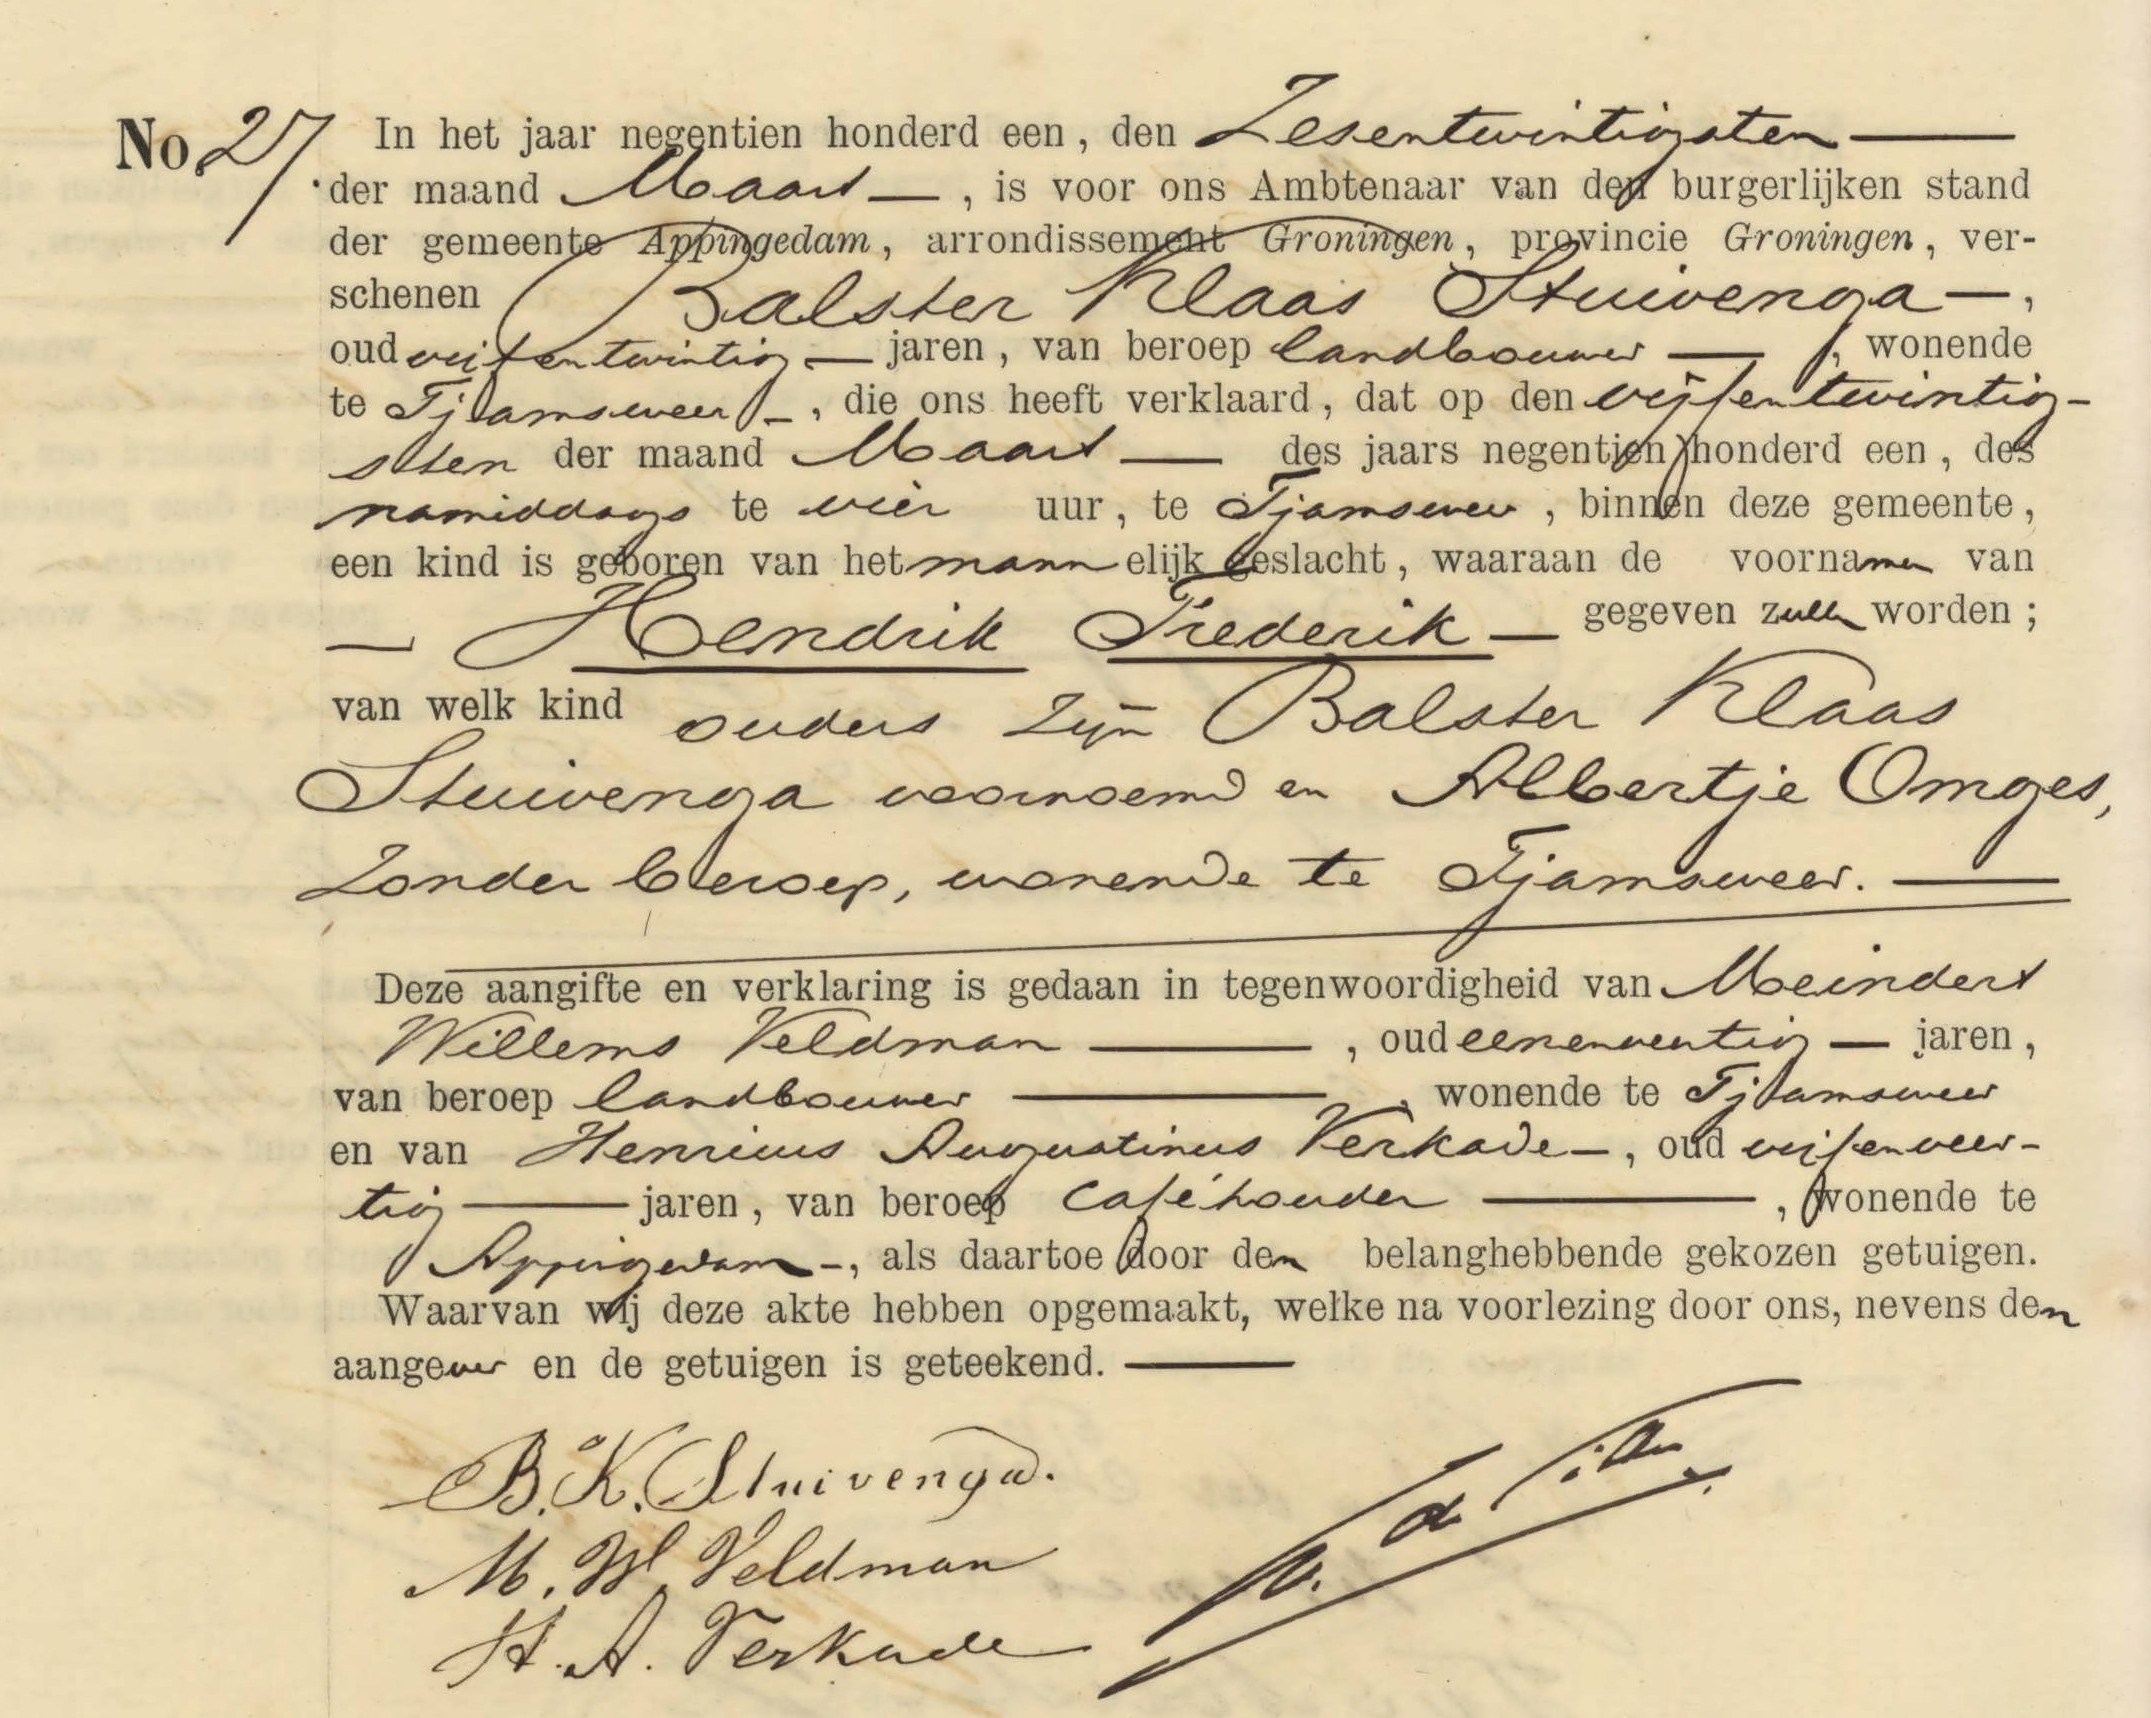 No. 27. In het jaar negentien honderd een, den Zesentwintigsten —
der maand Maart —, is voor ons Ambtenaar van den burgerlijken stand
der gemeente Appingedam, arrondissement Groningen, provincie Groningen, ver-
schenen Balster Klaas Stuivenga —,
oud vijfentwintig — jaren, van beroep landbouwer —, wonende
te Tjamsweer —, die ons heeft verklaard, dat op den vijfentwintig-
sten der maand Maart — des jaars negentien honderd een, des
namiddags te vier uur, te Tjamsweer, binnen deze gemeente,
een kind is geboren van het mannelijk geslacht, waaraan de voornamen van
— Hendrik Frederik — gegeven zullen worden;
van welk kind ouders zijn Balster Klaas
Stuivenga voornoemd en Albertje Omges,
zonder beroep, wonende te Tjamsweer. —
Deze aangifte en verklaring is gedaan in tegenwoordigheid van Meindert
Willems Veldman —, oud — jaren,
van beroep landbouwer —, wonende te Tjamsweer
en van Henricus Augustinus Verkade —, oud vijfenveer-
tig — jaren, van beroep caféhouder —, wonende te
Appingedam —, als daartoe door den belanghebbende gekozen getuigen.
Waarvan wij deze akte hebben opgemaakt, welke na voorlezing door ons, nevens den
aangever en de getuigen is geteekend. —
B. K. Stuivenga.
M. W. Veldman
H. A. Verkade